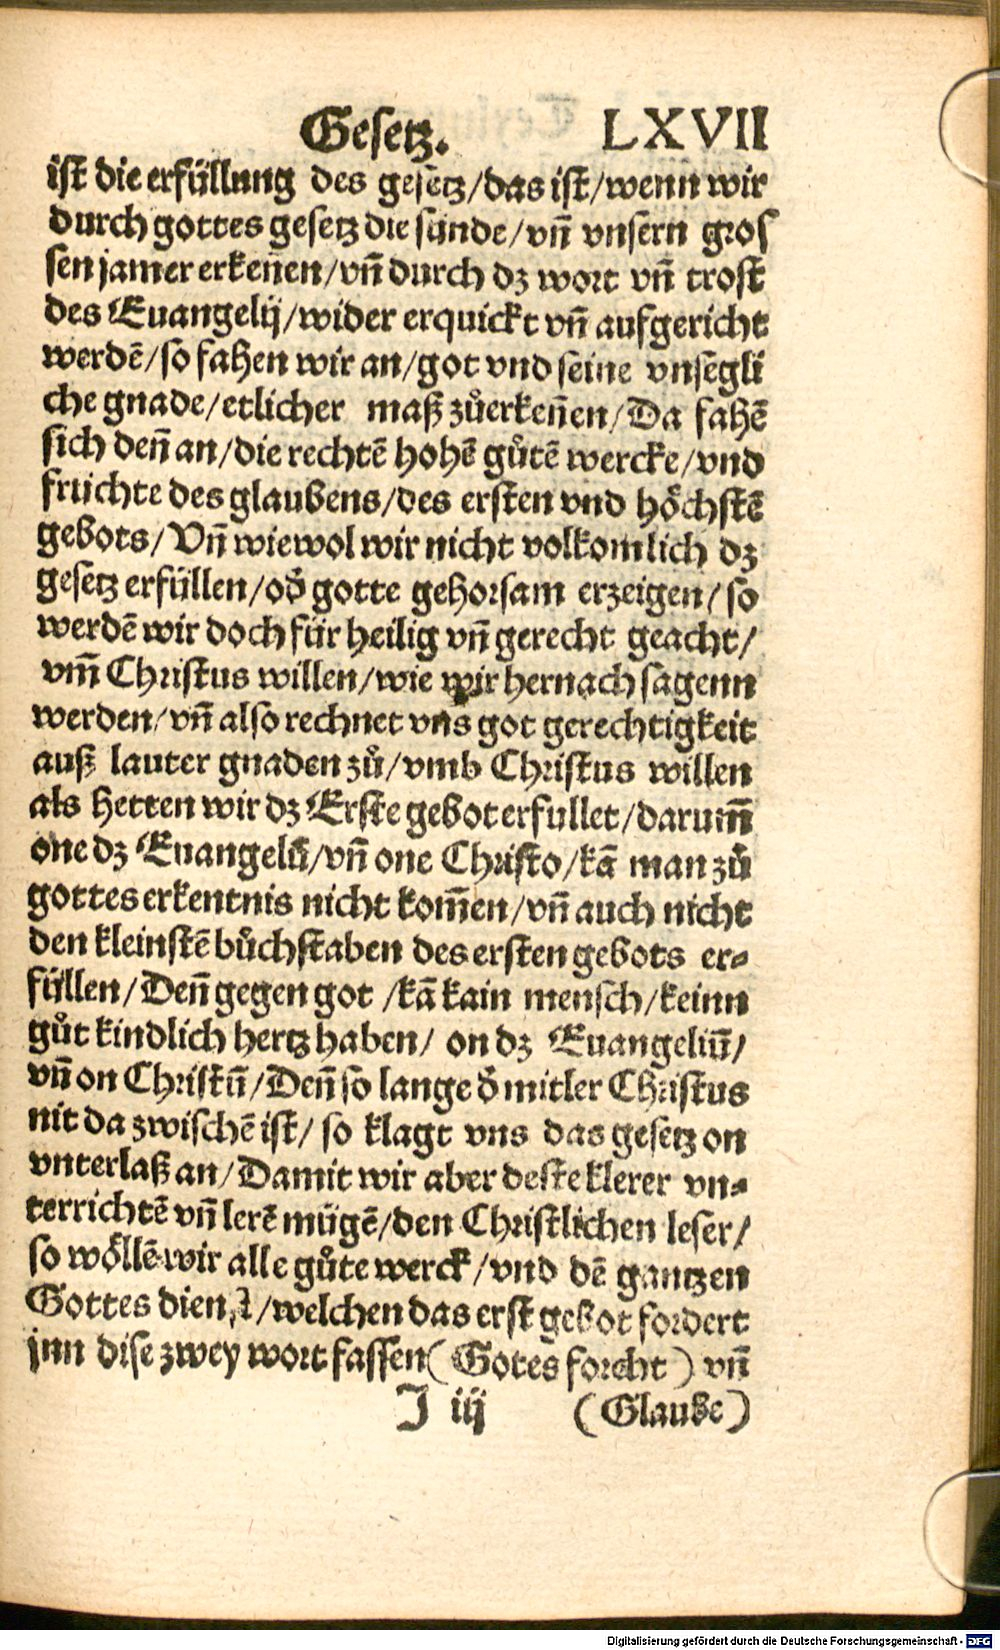 Gesetz. LXVII
ist die erfüllung des gesetz/das ist/wenn wir
durch gottes gesetz die sunde/vñ vnsern gros
sen jamer erkeñen/vñ durch dz wort vñ trost
des Euangelij/wider erquickt vñ aufgericht
werdē/so fahen wir an/got vnd seine vnsegli
che gnade/etlicher maß zůerkeñen/Da fahē
sich deñ an/die rechtē hohē gůtē wercke/vnd
fruchte des glaubens/des ersten vnd höchstē
gebots/Vñ wiewol wir nicht volkomlich dz
gesetz erfüllen/od̕ gotte gehorsam erzeigen/so
werdē wir doch für heilig vñ gerecht geacht/
vm̃ Christus willen/wie wir hernach sagenn
werden/vñ also rechnet vns got gerechtigkeit
auß lauter gnaden zů/vmb Christus willen
als hetten wir dz Erste gebot erfullet/darum̃
one dz Euangeliū/vñ one Christo/kā man zů
gottes erkentnis nicht kom̃en/vñ auch nicht
den kleinstē bůchstaben des ersten gebots er-
füllen/Deñ gegen got /kā kain mensch/keinn
gůt kindlich hertz haben/ on dz Euangeliū/
vñ on Christū/Deñ so lange d̕ mitler Christus
nit da zwischē ist/ so klagt vns das gesetz on
vnterlaß an/Damit wir aber deste klerer vn-
terrichtē vñ lerē mügē/den Christlichen leser/
so wöllē wir alle gůte werck/vnd dē gantzen
Gottes dienst/welchen das erst gebot fordert
jnn dise zwey wort fassen( Gotes forcht ) vñ
J iij (Glaube)
Digitalisierung gefördert durch die Deutsche Forschungsgemeinschaft - DFG